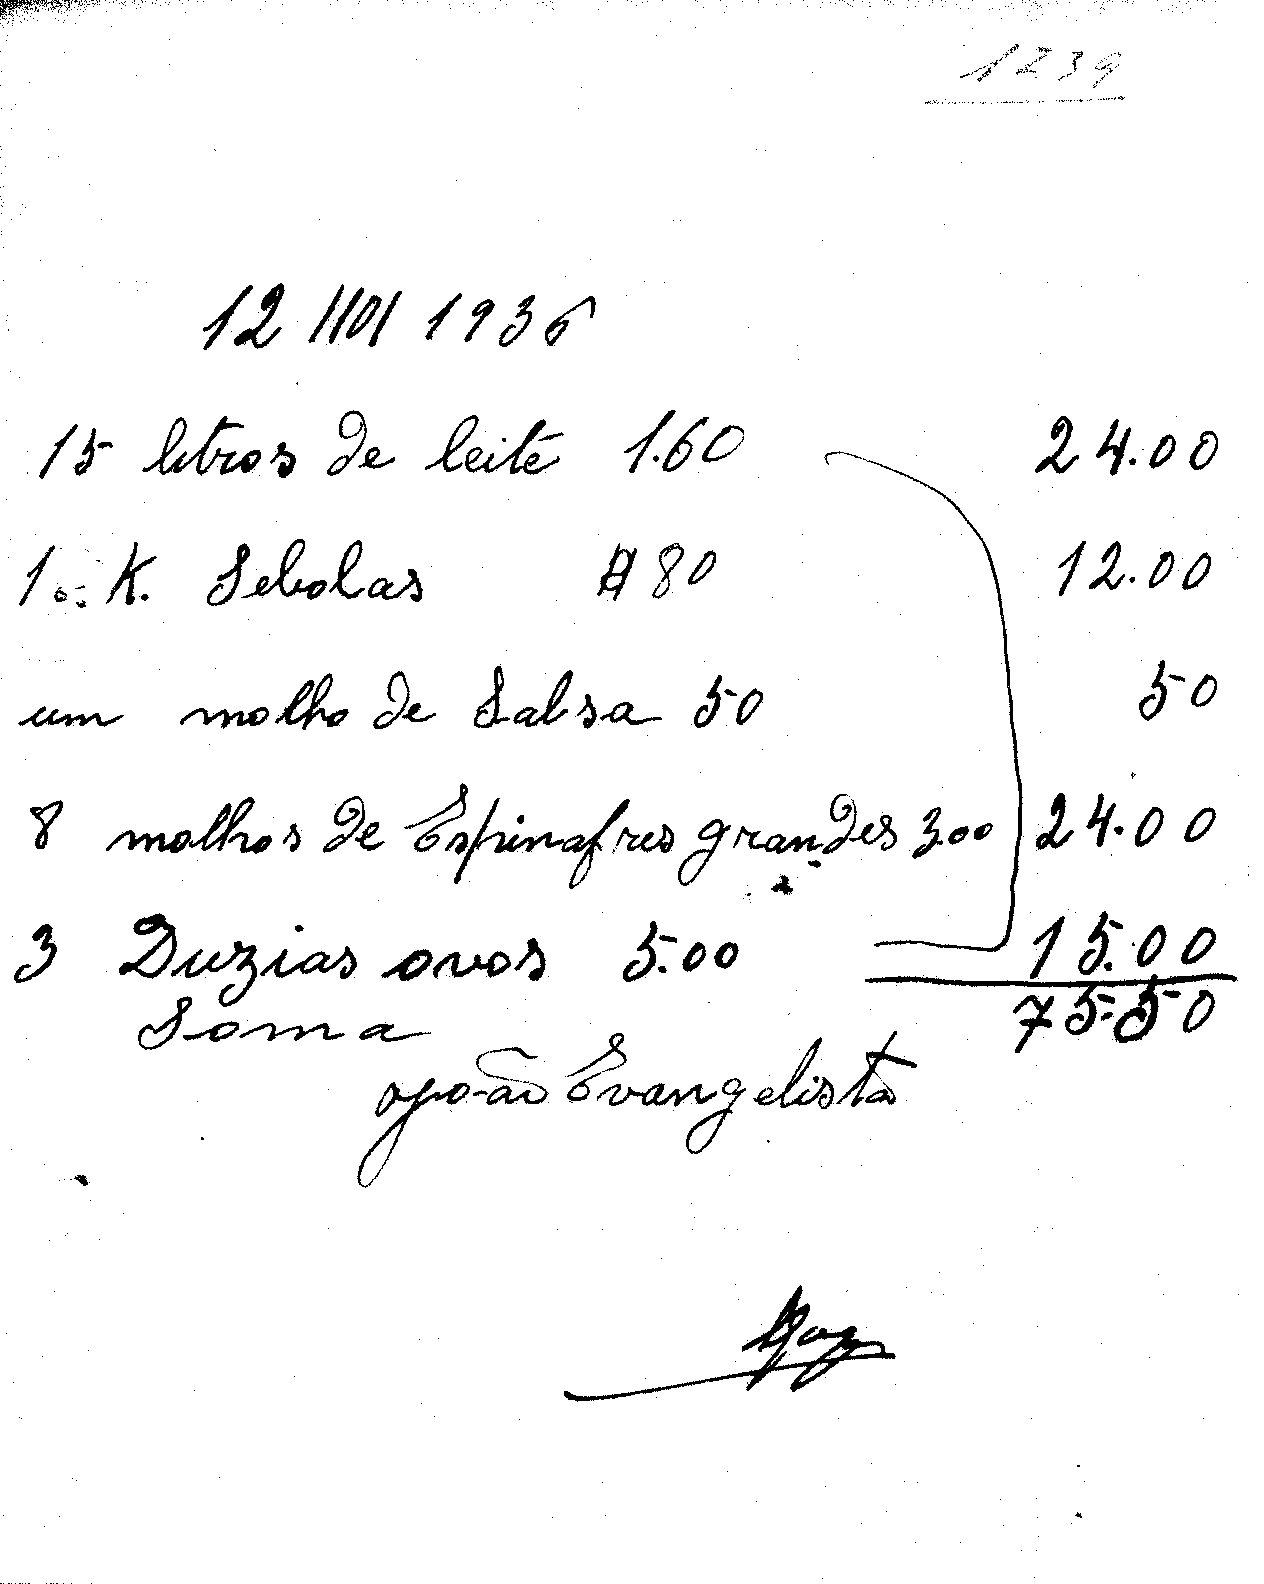 1239
12 1936
15 litros de leite 1.60 24.00
K. Sebolas $80 12.00
um molho de Salsa 50 50
8 molhos de Espinafres grandes 3.00 24.00
3 Duzias ovos 5.00 15.00
Soma 75.50
João Evangelista